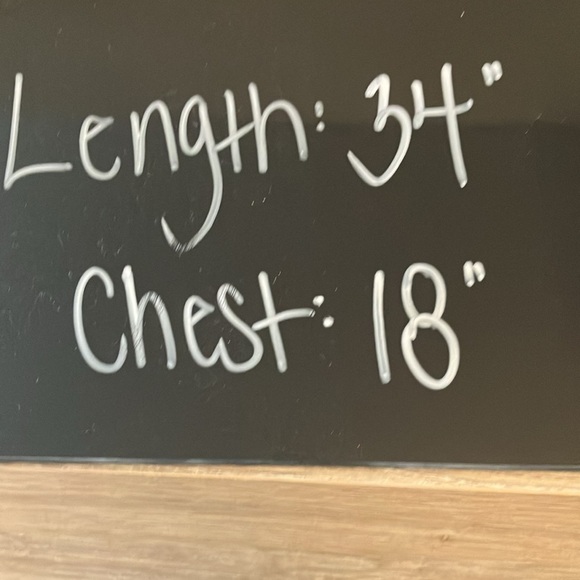 Length: 34"
Chest: 18"